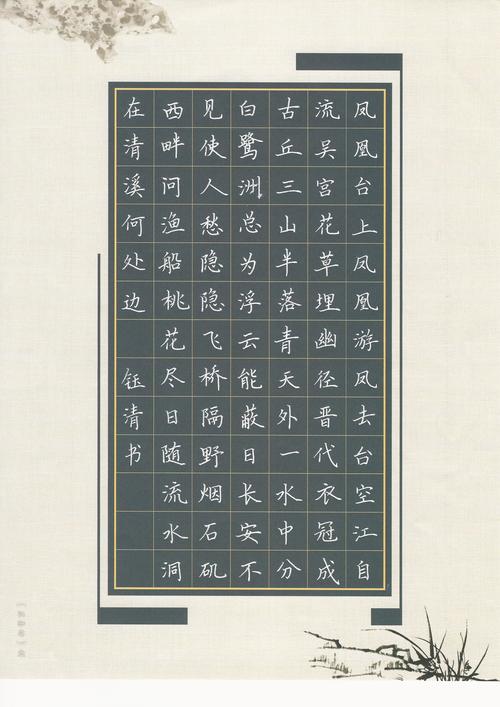 凤凰台上凤凰游凤去台空江自
流吴宫花草埋幽径晋代衣冠成
古丘三山半落青天外一水中分
白鹭洲总为浮云能蔽日长安不
见使人愁隐隐飞桥隔野烟石矶
西畔问渔船桃花尽日随流水洞
在清溪何处边 钰清书